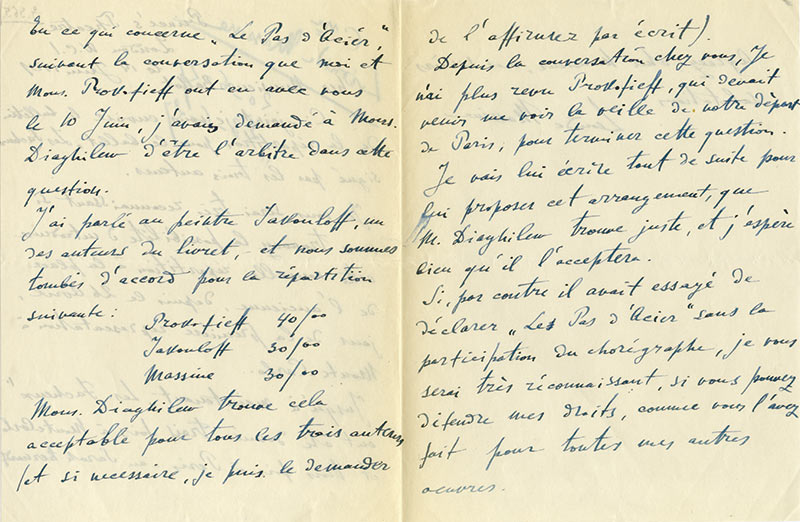 En ce qui concerne „Le Pas d'Acier",
suivant la conversation que moi et
Mons. Prokofieff ont eu avec vous
le 10 Juin, j'avais demandé à Mons.
Diaghilew d'être l'arbitre dans cette
question.
J'ai parlé au peintre Jakouloff, un
des auteurs du livret, et nous sommes
tombés d'accord pour la répartition
suivante:
Prokofieff 40/00
Jakouloff 30/00
Massine 30/00
Mons. Diaghilew trouve cela
acceptable pour tous les trois auteurs
(et si necessaire, je puis le demander
de l'affirmer par écrit).
Depuis la conversation chez vous, Je
n'ai plus revu Prokofieff, qui devait
venir me voir la veille de notre départ
de Paris, pour terminer cette question.
Je vais lui écrire tout de suite pour
lui proposer cet arrangement, que
M. Diaghilew trouve juste, et j'espère
bien qu'il l'acceptera.
Si, par contre il avait essayé de
déclarer „Les Pas d'Acier" sans la
participation du chorégraphe, je vous
serai très réconnaissant, si vous pouvez
défendre mes droits, comme vous l'avez
fait pour toutes mes autres
oeuvres.